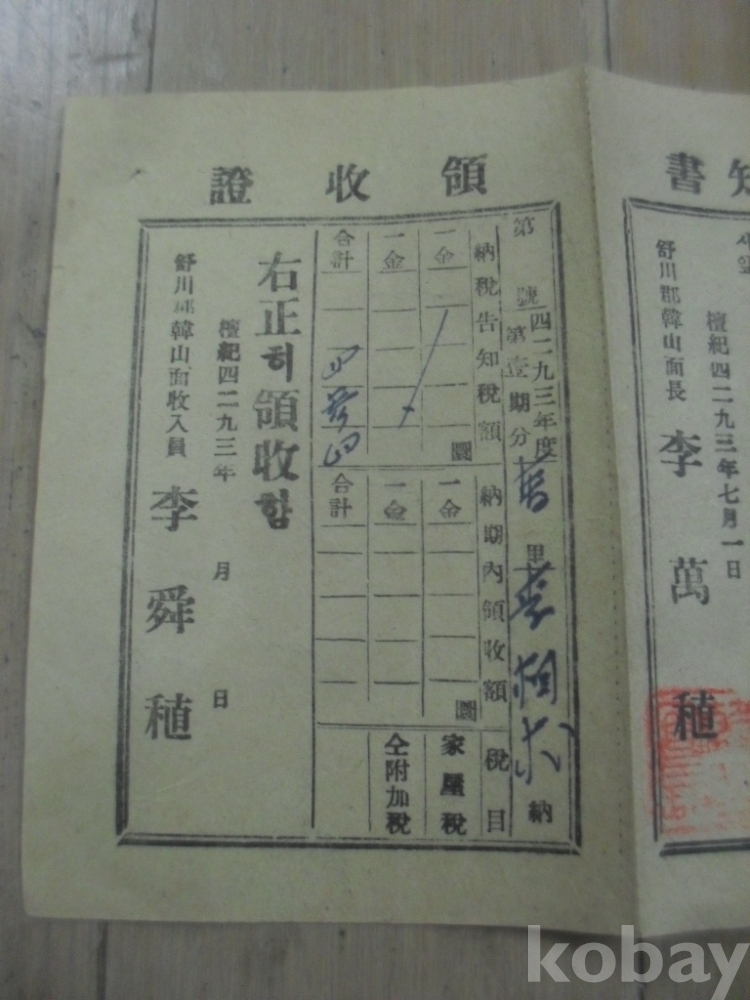 知書
서일
檀紀四二九三年七月一日
舒川郡韓山面長 李萬稙
領收證
第 號 四二九三年度
第壹期分 里 李相 納
納稅告知稅額 圜 納期內領收額 圜 稅目
一金 一金 家屋稅
一金 一金 仝附加稅
合計 合計
右正히領收함
檀紀四二九三年 月 日
舒川郡韓山面收入員 李舜稙
kobay